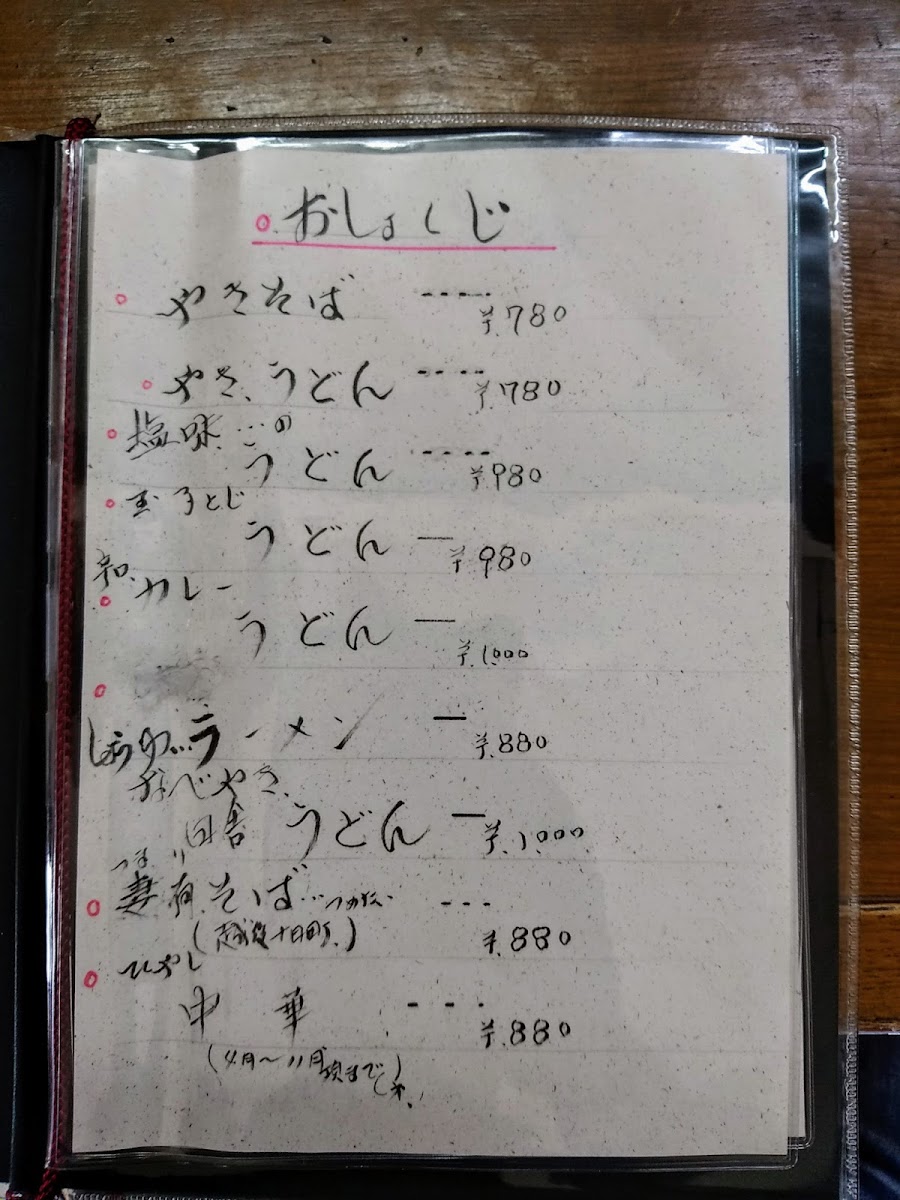 おしょくじ
やきそば ---- ¥.780
やき、うどん ---- ¥780
塩味…の
うどん ---- ¥980
玉子とじ
うどん — ¥980
カレー
うどん — ¥.1000
しょうゆ…ラーメン — ¥.880
なべやき、
田舎 うどん — ¥.1000
つまり
妻有そば… --- ¥.880
(越後十日町.)
ひやし
中華 --- ¥.880
(4月～11月頃まで)